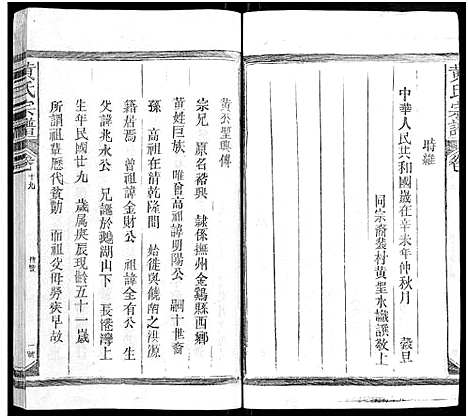 黃氏宗譜 卷
時維
中華人民共和國歲在辛未年仲秋月 穀旦
同宗裔裝村黃聖水識譔敬上
黃公聖興傳
宗兄 原名裕興 隸係撫州金鷄縣西鄉
黃姓巨族 唯曾高祖諱明陽公 嗣十世裔
孫 高祖在清乾隆間 始徙與饒南之洪源
籍居焉 曾祖諱金財公 祖諱全有公 生
父諱兆水公 兄誕於鵝湖山下 長港灣上
生年民國廿九 歲屬庚辰現齡五十一歲
所謂祖輩歷代貧勤 而祖父母勞疾早故
黃氏宗譜 卷 十九 傳贊 一號